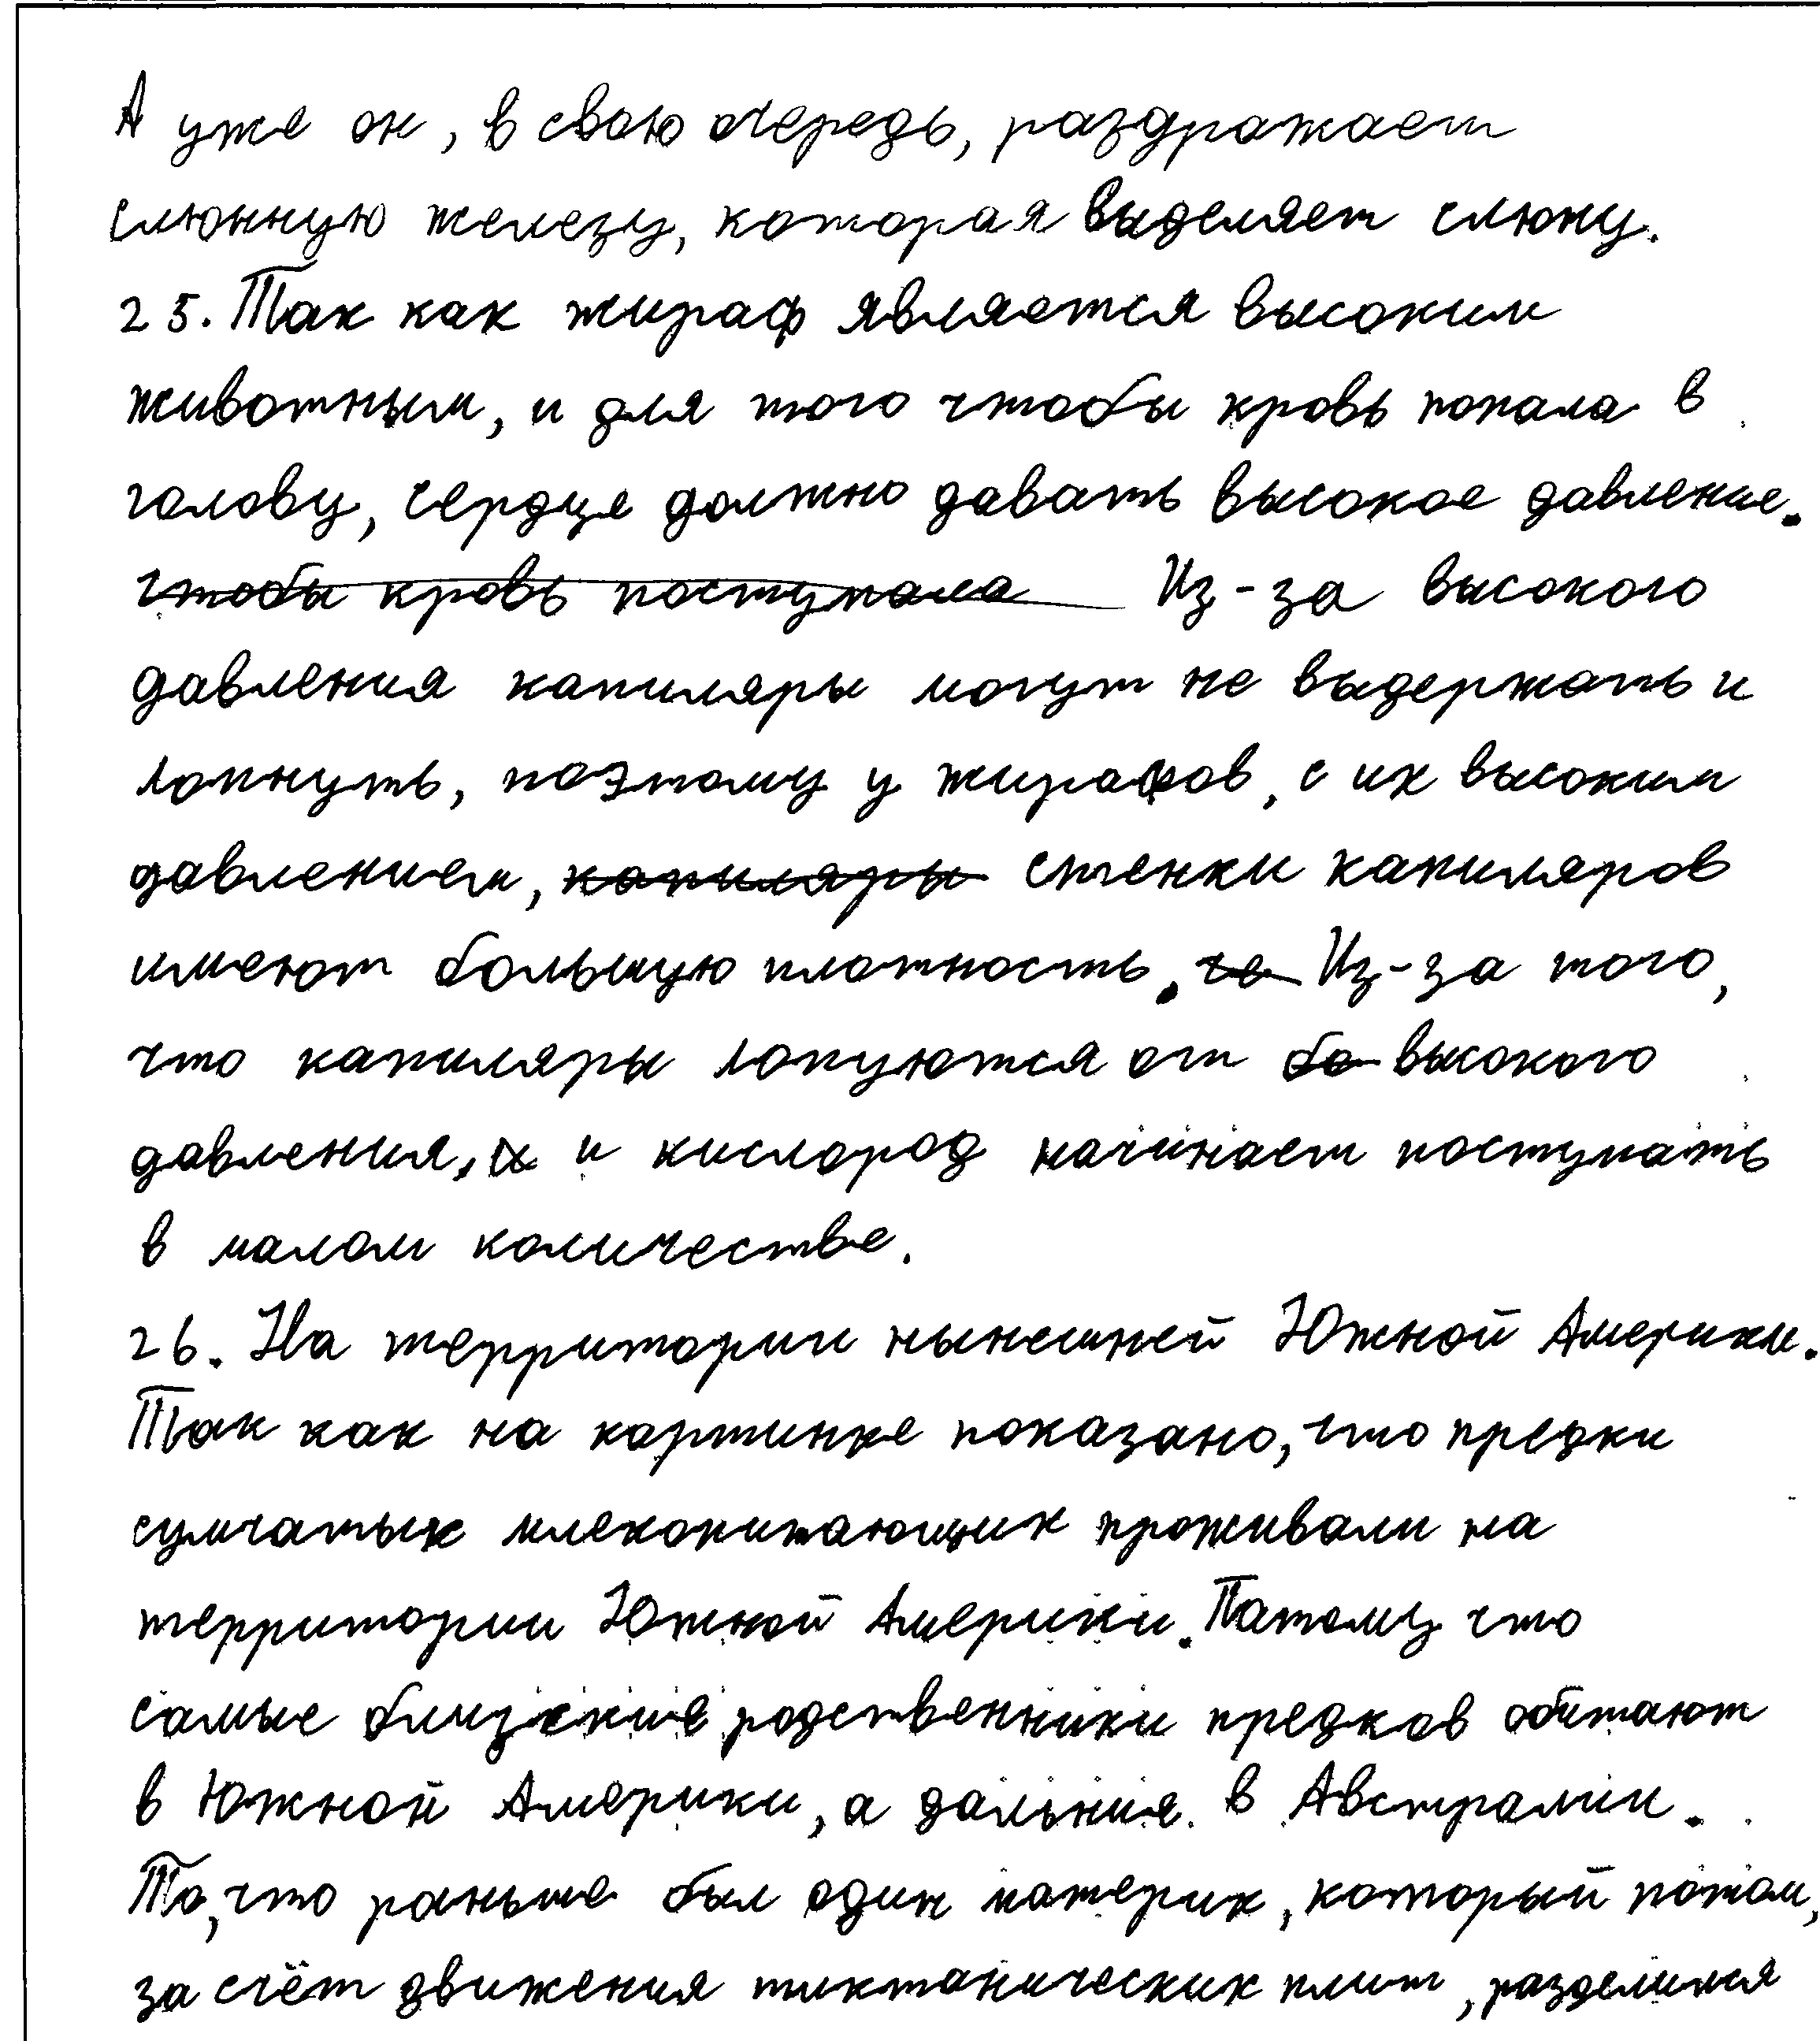 А уже он, в свою очередь, раздражает
слюнную железу, которая выделяет слюну.
25. Так как жираф является высоким
животным, и для того чтобы кровь попала в
голову, сердце должно давать высокое давление.
чтобы кровь поступала Из-за высокого
давления капиляры могут не выдержать и
лопнуть, поэтому у жирафов, с их высоким
давлением, капиляры стенки капиляров
имеют большую плотность. че Из-за того,
что капиляры лопуются от бо высокого
давления, и кислород начинает поступать
в малом количестве.
26. На территории нынешней Южной Америки.
Так как на картинке показано, что предки
сумчатых млекопитающих проживали на
территории Южной Америки. Патому что
самые близские родственники предков обитают
в Южной Америки, а дальния в Австралии.
То, что раньше был один материк, который потом,
за счёт движения тиктанических плит, разделился